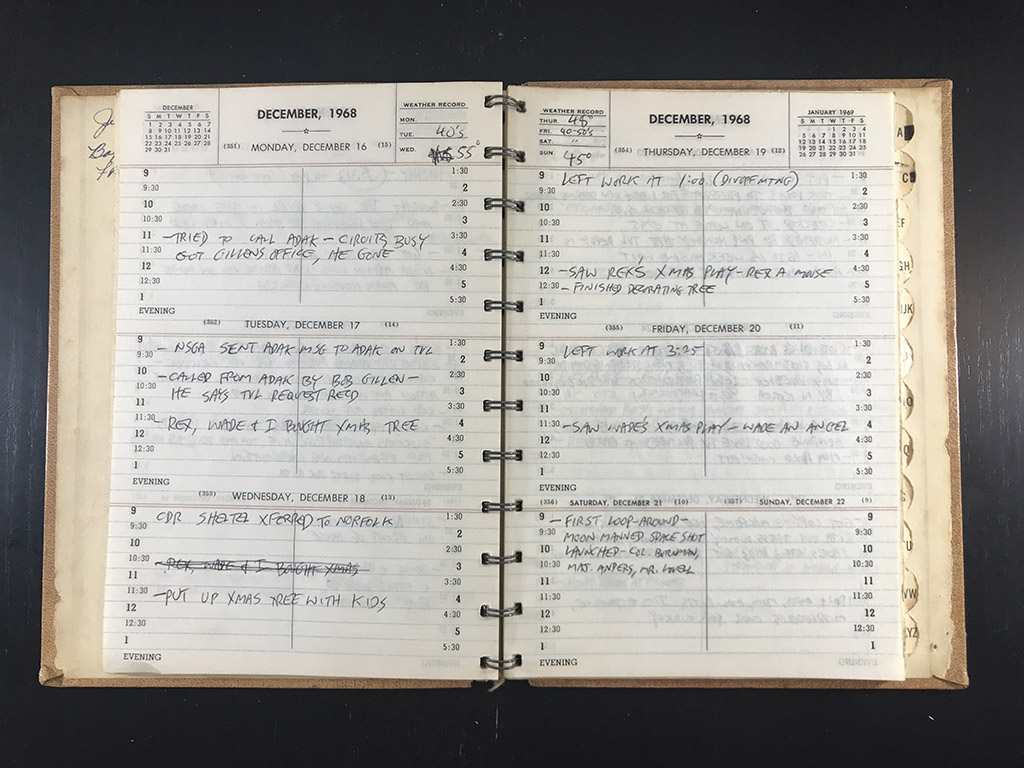 DECEMBER
S M T W T F S
1 2 3 4 5 6 7
8 9 10 11 12 13 14
15 16 17 18 19 20 21
22 23 24 25 26 27 28
29 30 31
DECEMBER, 1968
(351) MONDAY, DECEMBER 16 (15)
WEATHER RECORD
MON.
TUE. 40's
WED. 55°
9 1:30
9:30 2
10 2:30
10:30 3
11 - TRIED TO CALL ADAK - CIRCITS BUSY 3:30
11:30 GOT GILLENS OFFICE, HE GONE 4
12 4:30
12:30 5
1 5:30
EVENING
(352) TUESDAY, DECEMBER 17 (14)
9 - NSGA SENT ADAK MSG TO ADAK ON TVL 1:30
9:30 2
10 - CALLED FROM ADAK BY BOB GILLEN - 2:30
10:30 HE SAYS TVL REQUEST REC'D 3
11 3:30
11:30 - REX, WADE & I BOUGHT XMAS TREE 4
12 4:30
12:30 5
1 5:30
EVENING
(353) WEDNESDAY, DECEMBER 18 (13)
9 CDR XFERRED TO NORFOLK 1:30
9:30 2
10 2:30
10:30 - REX, WADE & I BOUGHT XMAS 3
11 3:30
11:30 - PUT UP XMAS TREE WITH KIDS 4
12 4:30
12:30 5
1 5:30
EVENING
WEATHER RECORD
THUR. 48°
FRI. 40-50's
SAT. "
SUN. 45°
DECEMBER, 1968
(354) THURSDAY, DECEMBER 19 (12)
JANUARY 1969
S M T W T F S
1 2 3 4
5 6 7 8 9 10 11
12 13 14 15 16 17 18
19 20 21 22 23 24 25
26 27 28 29 30 31
9 LEFT WORK AT 1:00 1:30
9:30 2
10 2:30
10:30 3
11 3:30
11:30 4
12 - SAW REX'S XMAS PLAY - REX A MOUSE 4:30
12:30 - FINISHED DECORATING TREE 5
1 5:30
EVENING
(355) FRIDAY, DECEMBER 20 (11)
9 LEFT WORK AT 3:25 1:30
9:30 2
10 2:30
10:30 3
11 3:30
11:30 - SAW WADE'S XMAS PLAY - WADE AN ANGEL 4
12 4:30
12:30 5
1 5:30
EVENING
(356) SATURDAY, DECEMBER 21 (10) (357) SUNDAY, DECEMBER 22 (9)
9 - FIRST LOOP-AROUND- 9
9:30 MOON MANNED SPACE SHOT 9:30
10 LAUNCHED - COL. BORNMAN, 10
10:30 MAJ. ANDERS, MR. LOVELL 10:30
11 11
11:30 11:30
12 12
12:30 12:30
1 1
EVENING
A
C
EF
GH
IJK
O
Q
U
VW
XYZ